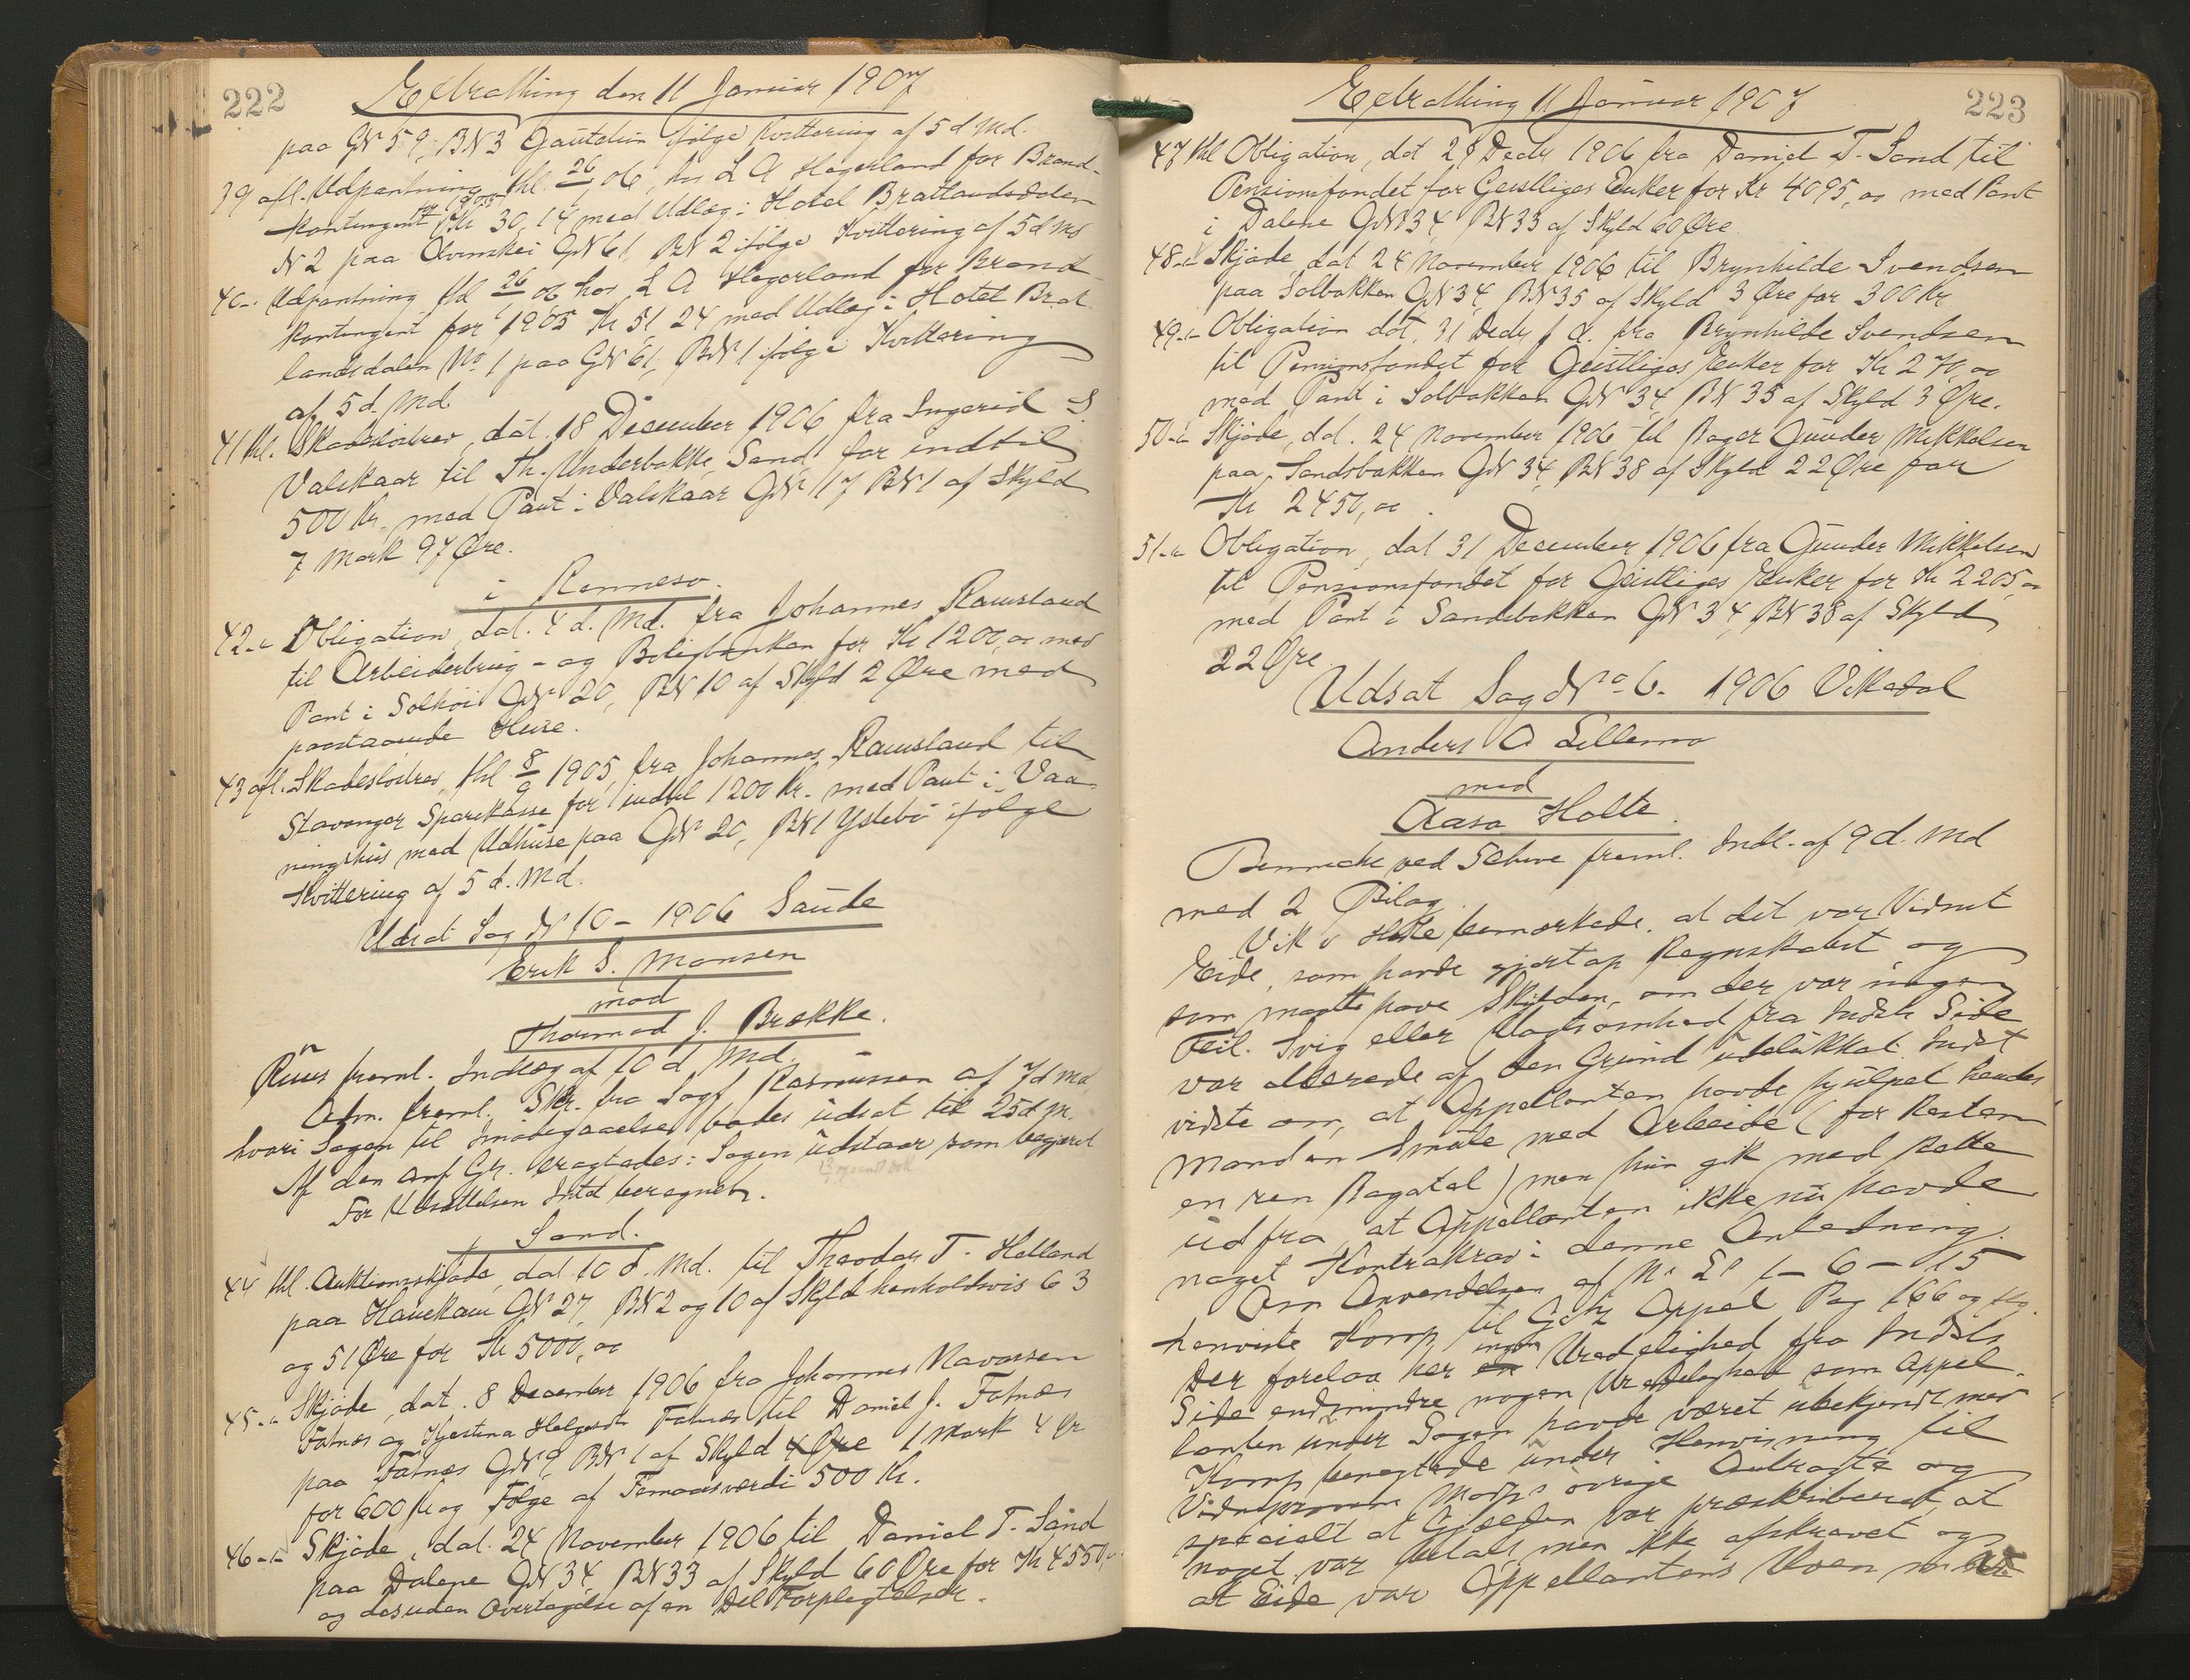 222
Extrathing den 11 Januar 1907
paa GN 59, BN 3 Gautetun ifølge Kvittering af 5 d. Md.
39 afl. Udpantning thl. 26/ 06, hos L A Hagerland for Brand-
kontingent for 1905 Kr 30,14 med Udlæg i Hotel Bratlandsdalen
N 2 paa GN 61, BN 2 ifølge Kvittering af 5 d Md
40 -"- Udpantning thl 26/ 06 hos L A Hagerland for Brand
kontingent for 1905 Kr 51 24 med Udlæg i Hotel Brat
landsdalen No 1 paa GN 61, BN 1 ifølge Kvittering
af 5 d. Md
41 thl. Skadesløsbrev, dat. 18 December 1906 fra Ingerid S
Valskaar til Th. Underbakke, Sand for indtil
500 Kr. med Pant i Valskaar GN 117 BN 1 af Skyld
7 Mark 97 Øre.
i Rennesø.
42 -"- Obligation, dat. 4 d. Md. fra Johannes Ramsland
til Arbeiderbrug- og Boligbanken for Kr 1200,00 med
Pant i Solhøi GN 20, BN 10 af Skyld 2 Øre med
paastaaende Huse.
43 afl. Skadesløsbrev, thl 8/9 1905, fra Johannes Ramsland til
Stavanger Sparekasse for indtil 1200 Kr. med Pant i Vaa-
ningshus med Udhuse paa GN 20, BN 1 Ystebø ifølge
Kvittering af 5 d. Md.
Udsat Sag N 10 - 1906 Saude
Erik S. Monsen
mod
Thormod J. Brække.
Ruus freml. Indlæg af 10 d Md.
Adm. freml. Skr. fra Sagf Rasmussen af 7 d Md,
hvori Sagen til Imødegaaelse bades udsat til 25 d M.
Af den anf Gr. eragtades: Sagen udstaar som begjæret
For Udsættelsen Intet beregnet.
i Sand.
44 thl. Auktionsskjøde, dat 10 d. Md. til Theodor T. Helland
paa Hauekam GN 27, BN 2 og 10 af Skyld henholdsvis 63
og 51 Øre for Kr 5000,00
45 -"- Skjøde, dat. 8 December 1906 fra Johannes Navarsen
Fatnes og Kjestina Helgesdtr Fatnæs til Daniel J. Fatnæs
paa Fatnæs GN 9, BN 1 af Skyld 4 Øre 1 Mark 4 Ør
for 600 Kr og Følge af Femaarsværdi 500 Kr.
46 -"- Skjøde, dat. 24 November 1906 til Daniel T. Sand
paa Dalene GN 34, BN 33 af Skyld 60 Øre for Kr 4550,
og desuden Overtagelse af en Del Forpligtelser.
223
Extrathing 11 Januar 1907
47 thl Obligation, dat 29 Decbr 1906 fra Daniel T. Sand til
Pensionsfondet for Geistliges Enker for Kr 4095,00 med Pant
i Dalene GN 34, BN 33 af Skyld 60 Øre
48 -"- Skjøde, dat 24 November 1906 til Brynhilde Svendsen
paa Solbakken GN 34, BN 35 af Skyld 3 Øre for 300 Kr
49 -"- Obligation dat. 31 Decbr f. A. fra Brynhilde Svendsen
til Pensionsfondet for Geistliges Enker for Kr 270,00
med Pant i Solbakken GN 34, BN 35 af Skyld 3 Øre.
50 -"- Skjøde, dat. 24 November 1906 til Bager Gunder Mikkelsen
paa Sandsbakken GN 34, BN 38 af Skyld 22 Øre for
Kr 2450,00.
51 -"- Obligation, dat 31 December 1906 fra Gunder Mikkelsen
til Pensionsfondet for Geistliges Enker for Kr 2205,00
med Pant i Sandsbakken GN 34, BN 38 af Skyld
22 Øre
Udsat Sag No 6. 1906 Vikedal
Anders O Lillemo
mod
Aasa Holte.
Bennecke ved Schive freml. Indl. af 9 d. Md
med 2 Bilag.
Vik v Holte bemærkede, at det var Vidnet
Eide, som havde gjort op Regnskabet og
som maatte have Skylden, om der var nogen
Feil. Svig eller Uagtsomhed fra Indst. Side
var allerede af den Grund udelukket. Indst
vidste om, at Appellanten havde hjulpet hendes
Mand en Smule med Arbeide (for Resten
en ren Bagatel) men hun gik med Rette
ud fra, at Appellanten ikke nu havde
noget Kontrakrav i denne Anledning.
Om Anvendelsen af N. L. 1 - 6 - 15
henviste Komp til Getz Appel Pag 166 og flg.
Der forelaa her ingen Uredelighed fra Indst.
Side endmindre nogen Uredelighed som Appel-
lanten under Sagen havde været ubekjendt med
Komp benegtede under Henvisning til
Vidneprovene Modps øvrige Anbragte og
specielt at Gjælden var præskriberet, at
noget var betalt men ikke afskrevet og
at Eide var Appellantens Uven